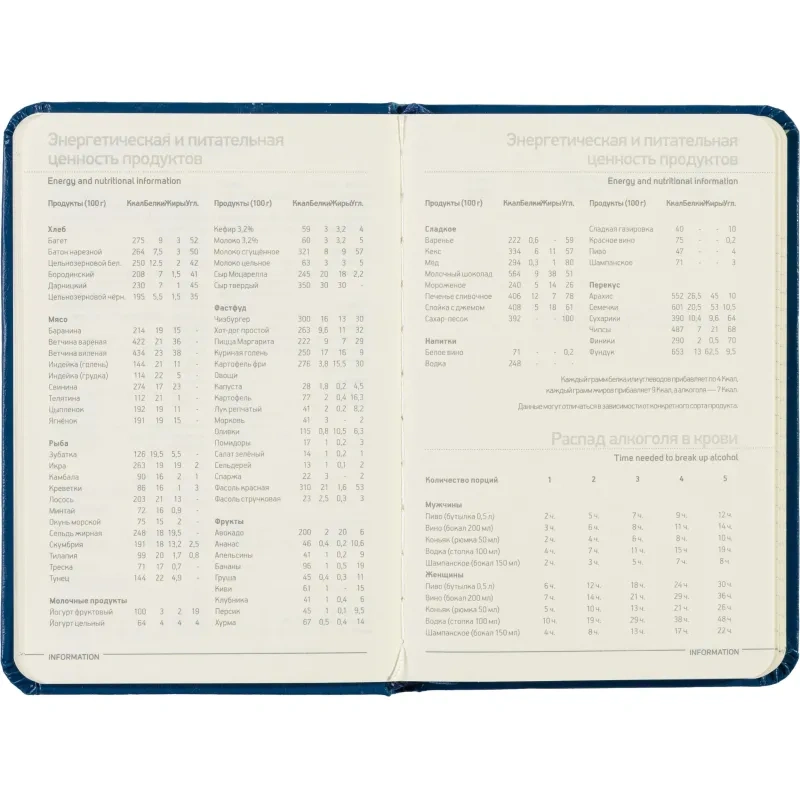 Энергетическая и питательная
ценность продуктов
Energy and nutritional information
Продукты (100 г) Ккал Белки Жиры Угл.
Хлеб
Багет 275 9 3 52
Батон нарезной 264 7,5 3 50
Цельнозерновой бел. 250 12,5 2 42
Бородинский 208 7 1,5 41
Дарницкий 230 7 1 45
Цельнозерновой черн. 195 5,5 1,5 35
Мясо
Баранина 214 19 15 -
Ветчина вареная 422 21 36 -
Ветчина вяленая 434 23 38 -
Индейка (голень) 144 21 11 -
Индейка (грудка) 114 22 5 -
Свинина 274 17 23 -
Телятина 112 21 1 -
Цыпленок 192 19 11 -
Ягнёнок 191 19 15 -
Рыба
Зубатка 126 19,5 5,5 -
Икра 263 19 19 2
Камбала 90 16 2 1
Креветки 86 16 1 3
Лосось 203 21 13 -
Минтай 72 16 0,9 -
Окунь морской 75 15 2 -
Сельдь жирная 248 18 19,5 -
Скумбрия 191 18 13,2 2,5
Тилапия 99 20 1,7 0,8
Треска 71 17 0,7 -
Тунец 144 22 4,9 -
Молочные продукты
Йогурт фруктовый 100 3 2 19
Йогурт цельный 64 4 4 4
Продукты (100 г) Ккал Белки Жиры Угл.
Кефир 3,2% 59 3 3,2 4
Молоко 3,2% 60 3 3,2 5
Молоко сгущённое 321 8 9 57
Молоко цельное 63 3 3 5
Сыр Моцарелла 245 20 18 2,2
Сыр твердый 350 30 30 -
Фастфуд
Чизбургер 300 16 13 30
Хот-дог простой 263 9,6 11 32
Пицца Маргарита 222 9 7 29
Куриная голень 250 17 16 9
Картофель фри 276 3,8 15,5 30
Овощи
Капуста 28 1,8 0,2 4,5
Картофель 77 2 0,4 16,3
Лук репчатый 41 2 0,2 8,2
Морковь 41 3 - 2
Оливки 115 0,8 10,5 6,3
Помидоры 17 1 0,2 3
Салат зелёный 14 1 0,2 2
Сельдерей 13 1 0,1 2
Спаржа 22 3 - 2
Фасоль красная 310 21 1,6 53
Фасоль стручковая 23 2,5 0,3 3
Фрукты
Авокадо 200 2 20 6
Ананас 46 0,4 0,2 10,6
Апельсины 41 1 0,2 9
Бананы 96 1 0,5 19
Груша 45 0,4 0,3 11
Киви 61 1 - 15
Клубника 41 1 0,4 6
Персик 45 1 0,1 9,5
Хурма 67 0,5 0,4 14
INFORMATION
Энергетическая и питательная
ценность продуктов
Energy and nutritional information
Продукты (100 г) Ккал Белки Жиры Угл.
Сладкое
Варенье 222 0,6 - 59
Кекс 334 6 11 57
Мёд 294 0,3 1 80
Молочный шоколад 564 9 38 51
Мороженое 240 5 14 26
Печенье сливочное 406 12 7 78
Слойка с джемом 408 5 18 61
Сахар-песок 392 - - 100
Напитки
Белое вино 71 - - 0,2
Водка 248 - - -
Продукты (100 г) Ккал Белки Жиры Угл.
Сладкая газировка 40 - - 10
Красное вино 75 - - 0,2
Пиво 47 - - 4
Шампанское 71 - - 3
Перекус
Арахис 552 26,5 45 10
Семечки 601 20,5 53 10,5
Сухарики 390 10,4 9,6 64
Чипсы 487 7 21 68
Финики 290 2 0,5 70
Фундук 653 13 62,5 9,5
Каждый грамм белка или углеводов прибавляет по 4 Ккал,
каждый грамм жиров прибавляет 9 Ккал, а алкоголя — 7 Ккал.
Данные могут отличаться в зависимости от конкретного сорта продукта.
Распад алкоголя в крови
Time needed to break up alcohol
Количество порций 1 2 3 4 5
Мужчины
Пиво (бутылка 0,5 л) 2 ч. 5 ч. 7 ч. 9 ч. 12 ч.
Вино (бокал 200 мл) 3 ч. 6 ч. 8 ч. 11 ч. 14 ч.
Коньяк (рюмка 50 мл) 2 ч. 4 ч. 6 ч. 8 ч. 10 ч.
Водка (стопка 100 мл) 4 ч. 7 ч. 11 ч. 15 ч. 19 ч.
Шампанское (бокал 150 мл) 2 ч. 3 ч. 5 ч. 7 ч. 8 ч.
Женщины
Пиво (бутылка 0,5 л) 6 ч. 12 ч. 18 ч. 24 ч. 30 ч.
Вино (бокал 200 мл) 7 ч. 14 ч. 21 ч. 29 ч. 36 ч.
Коньяк (рюмка 50 мл) 5 ч. 10 ч. 13 ч. 21 ч. 26 ч.
Водка (стопка 100 мл) 10 ч. 19 ч. 29 ч. 38 ч. 48 ч.
Шампанское (бокал 150 мл) 4 ч. 8 ч. 13 ч. 17 ч. 22 ч.
INFORMATION